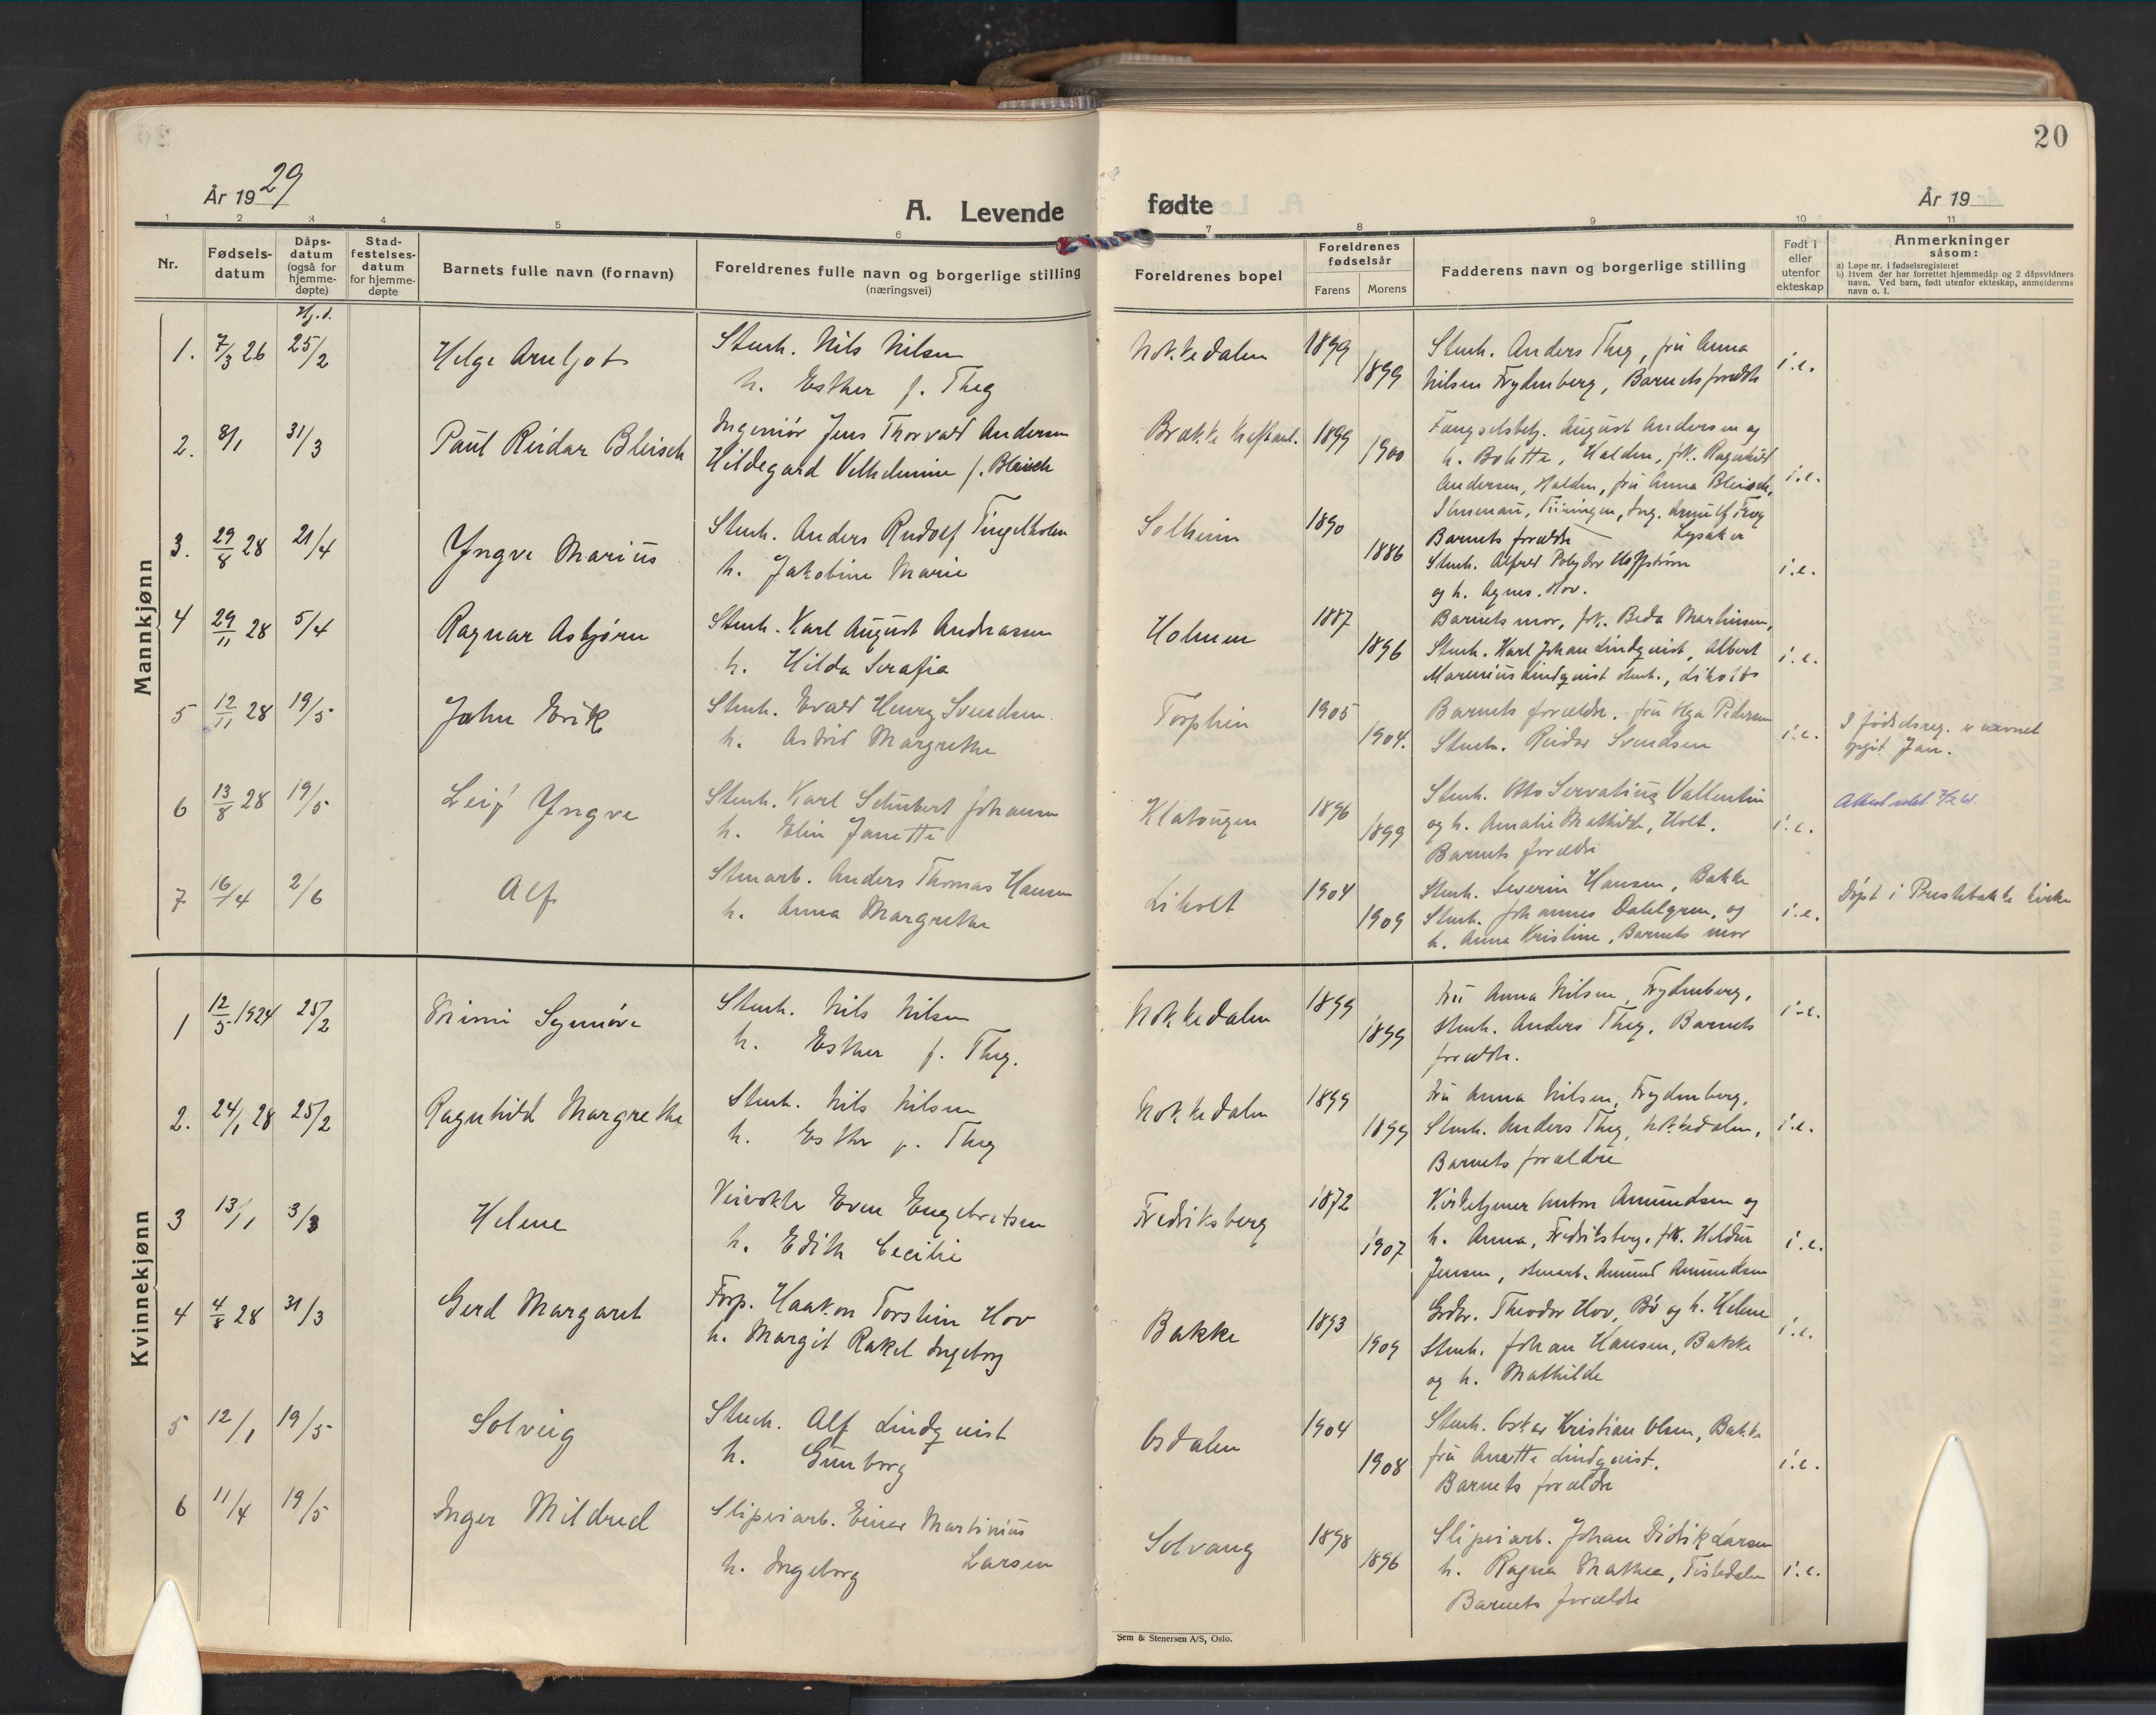 20
År 1929
A. Levende
fødte
År 19
1 2 3 4 5 6 7 8 9 10 11
Nr.
Fødsels-datum
Dåps-datum (også for hjemme-døpte)
Stad-festelses-datum for hjemme-døpte
Barnets fulle navn (fornavn)
Foreldrenes fulle navn og borgerlige stilling
(næringsvei)
Foreldrenes bopel
Foreldrenes fødselsår
Farens Morens
Fadderens navn og borgerlige stilling
Født i eller utenfor ekteskap
Anmerkninger
såsom:
a) Løpe nr. i fødselsregisteret
b) Hvem der har forrettet hjemmedåp og 2 dåpsvidners
navn. Ved barn, født utenfor ekteskap, anmelderens
navn o. l.
Mannkjønn
Hj. d.
1. 7/3 26 25/2 Helge Arnljot
Stenh. Nils Nilsen
h. Esther f. Theg
Nokkedalen 1899 1899
Stenh. Anders Theg, fru Anna
Nilsen Frydenberg, Barnets foreldre
i.e.
2. 8/1 31/3 Paul Reidar Bleisch
Ingeniör Jens Thorvald Andersen
Hildegard Vilhelmine f. Bleisch
Brekke kraftanl. 1899 1900
Fængselsbetj. August Andersen og
h. Bolette, Halden, frk. Ragnhild
Andersen, Halden, fru Anna Bleisch,
Ilmenau, Türingen, Ing. Arnulf
Lysaker
i.e.
3. 29/8 28 21/4 Yngve Marius
Stenh. Anders Rudolf Tingelholm
h. Jakobine Marie
Solheim 1890 1886
Barnets forældre
Stenh. Alfred Polydor Hoffstrøm
og h. Agnes. Hov.
i.e.
4 29/11 28 5/4 Ragnar Asbjørn
Stenh. Karl August Andreassen
h. Hilda Serafia
Holmen 1887 1896
Barnets mor, frk. Beda Martinsen,
Stenh. Karl Johan Lindqvist, Albert
Marenius Lindqvist stenh., Liholt
i.e.
5 12/11 28 19/5 John Erik
Stenh. Evald Henry Svendsen.
h. Astrid Margrethe
Torphein 1905 1904.
Barnets forældre. fru Olga Pedersen
Stenh. Reidar Svendsen
i.e.
I fødselsreg. er navnet
opgit Jan.
6 13/8 28 19/5 Leif Yngve
Stenh. Karl Schubert Johansen
h. Elin Janette
Klatoügen 1896 1899
Stenh. Otto Servatius Vallentin
og h. Amalie Mathilde, Holt.
Barnets forældre
i.e.
7 16/4 2/6 Alf
Stenarb. Anders Thomas Hansen
h. Anna Margrethe
Liholt 1904 1909
Stenh. Severin Hansen, Bakke
Stenh. Johannes Dahlgren, og
h. Anna Kristine, Barnets mor
i.e.
Døpt i Prestebakke kirke
Kvinnekjønn
1 12/5 1924 25/2 Synnöve
Stenh. Nils Nilsen
h. Esther f. Theg.
Nokkedalen 1899 1899
Fru Anna Nilsen, Frydenberg,
stenh. Anders Theg, Barnets
forældre.
i.e.
2. 24/1 28 25/2 Ragnhild Margrethe
Stenh. Nils Nilsen
h. Esther f. Theg
Nokkedalen 1899 1899
Fru Anna Nilsen, Frydenberg,
Stenh. Anders Theg, Nokkedalen,
Barnets forældre
i.e.
3 13/1 3/3 Helene
Veivokter Even Engebretsen
h. Edith Cecilie
Fredriksberg 1872 1907
Kirketjener Anton Amundsen og
h. Anna, Fredriksberg, frk. Heldur
Jensen, stenarb. Amund Amundsen
i.e.
4 4/8 28 31/3 Gerd Margaret
Forp. Haakon Torstein Hov
h. Margit Rakel Ingeborg
Bakke 1893 1909
Grdbr. Theodor Hov, Bö og h. Helene
Stenh. Johan Hansen, Bakke
og h. Mathilde
i.e.
5 12/1 19/5 Solveig
Stenh. Alf Lindqvist
h. Gunborg
Osdalen 1904 1908
Stenh. Oskar Kristian Olsen, Bakke
fru Anette Lindqvist.
Barnets forældre
i.e.
6 11/4 19/5 Inger Mildred
Sliperiarb. Einar Martinius
h. Ingeborg Larsen
Solvang 1898 1896
Sliperiarb. Johan Didrik Larsen
h. Ragna Mathea, Tistedalen
Barnets forældre
i.e.
Sem & Stenersen A/S, Oslo.